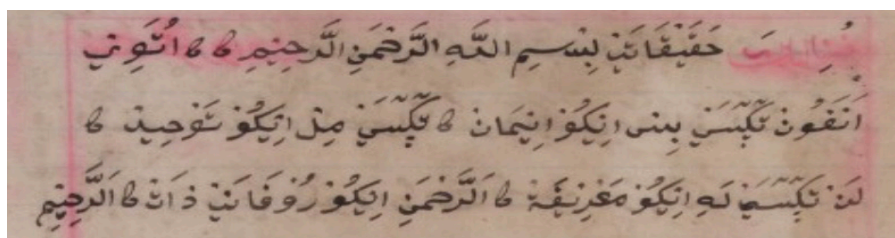 حَقَيْقَاتَيْ بِسْمِ اللَّهِ الرَّحْمَنِ الرَّحِيْمِ ۝ ۝ اُتَوِيْ
اَنَفَوُنْ تَڮَٓسَيْ بِسْمِ اِيْكُوْ اِيْمَانْ ۝ تَڮَٓسَيْ مِلْ اِيْكُوْ تَوْحِيْدْ ۝
لَنْ تَڮَٓسَيْ لَهِ اِيْكُوْ مَعْرِيْفَةْ ۝ اَلرَّحْمَنِ اِيْكُوْ رُوْفَانَيْ ذَاتْ ۝ اَلرَّحِيْمِ